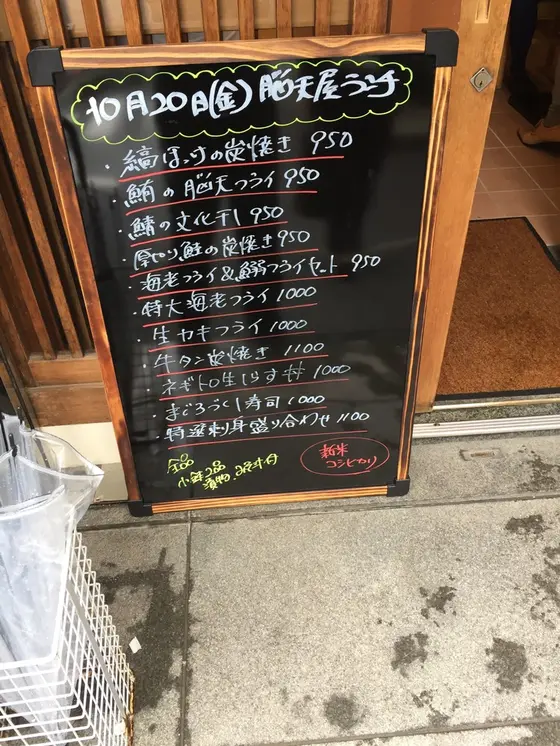 10月20日(金)脳天屋ランチ
・縞ほっけの炭焼き 950
・鮪の脳天フライ 950
・鯖の文化干し 950
・厚切り鮭の炭焼き 950
・海老フライ&鰯フライセット 950
・特大海老フライ 1000
・生カキフライ 1000
・牛タン炭焼き 1100
・ネギトロ生しらす丼 1000
・まぐろづくし寿司 1000
・特選刺身盛り合わせ 1100
全品
小鉢2品
漬物、みそ汁付
新米
コシヒカリ